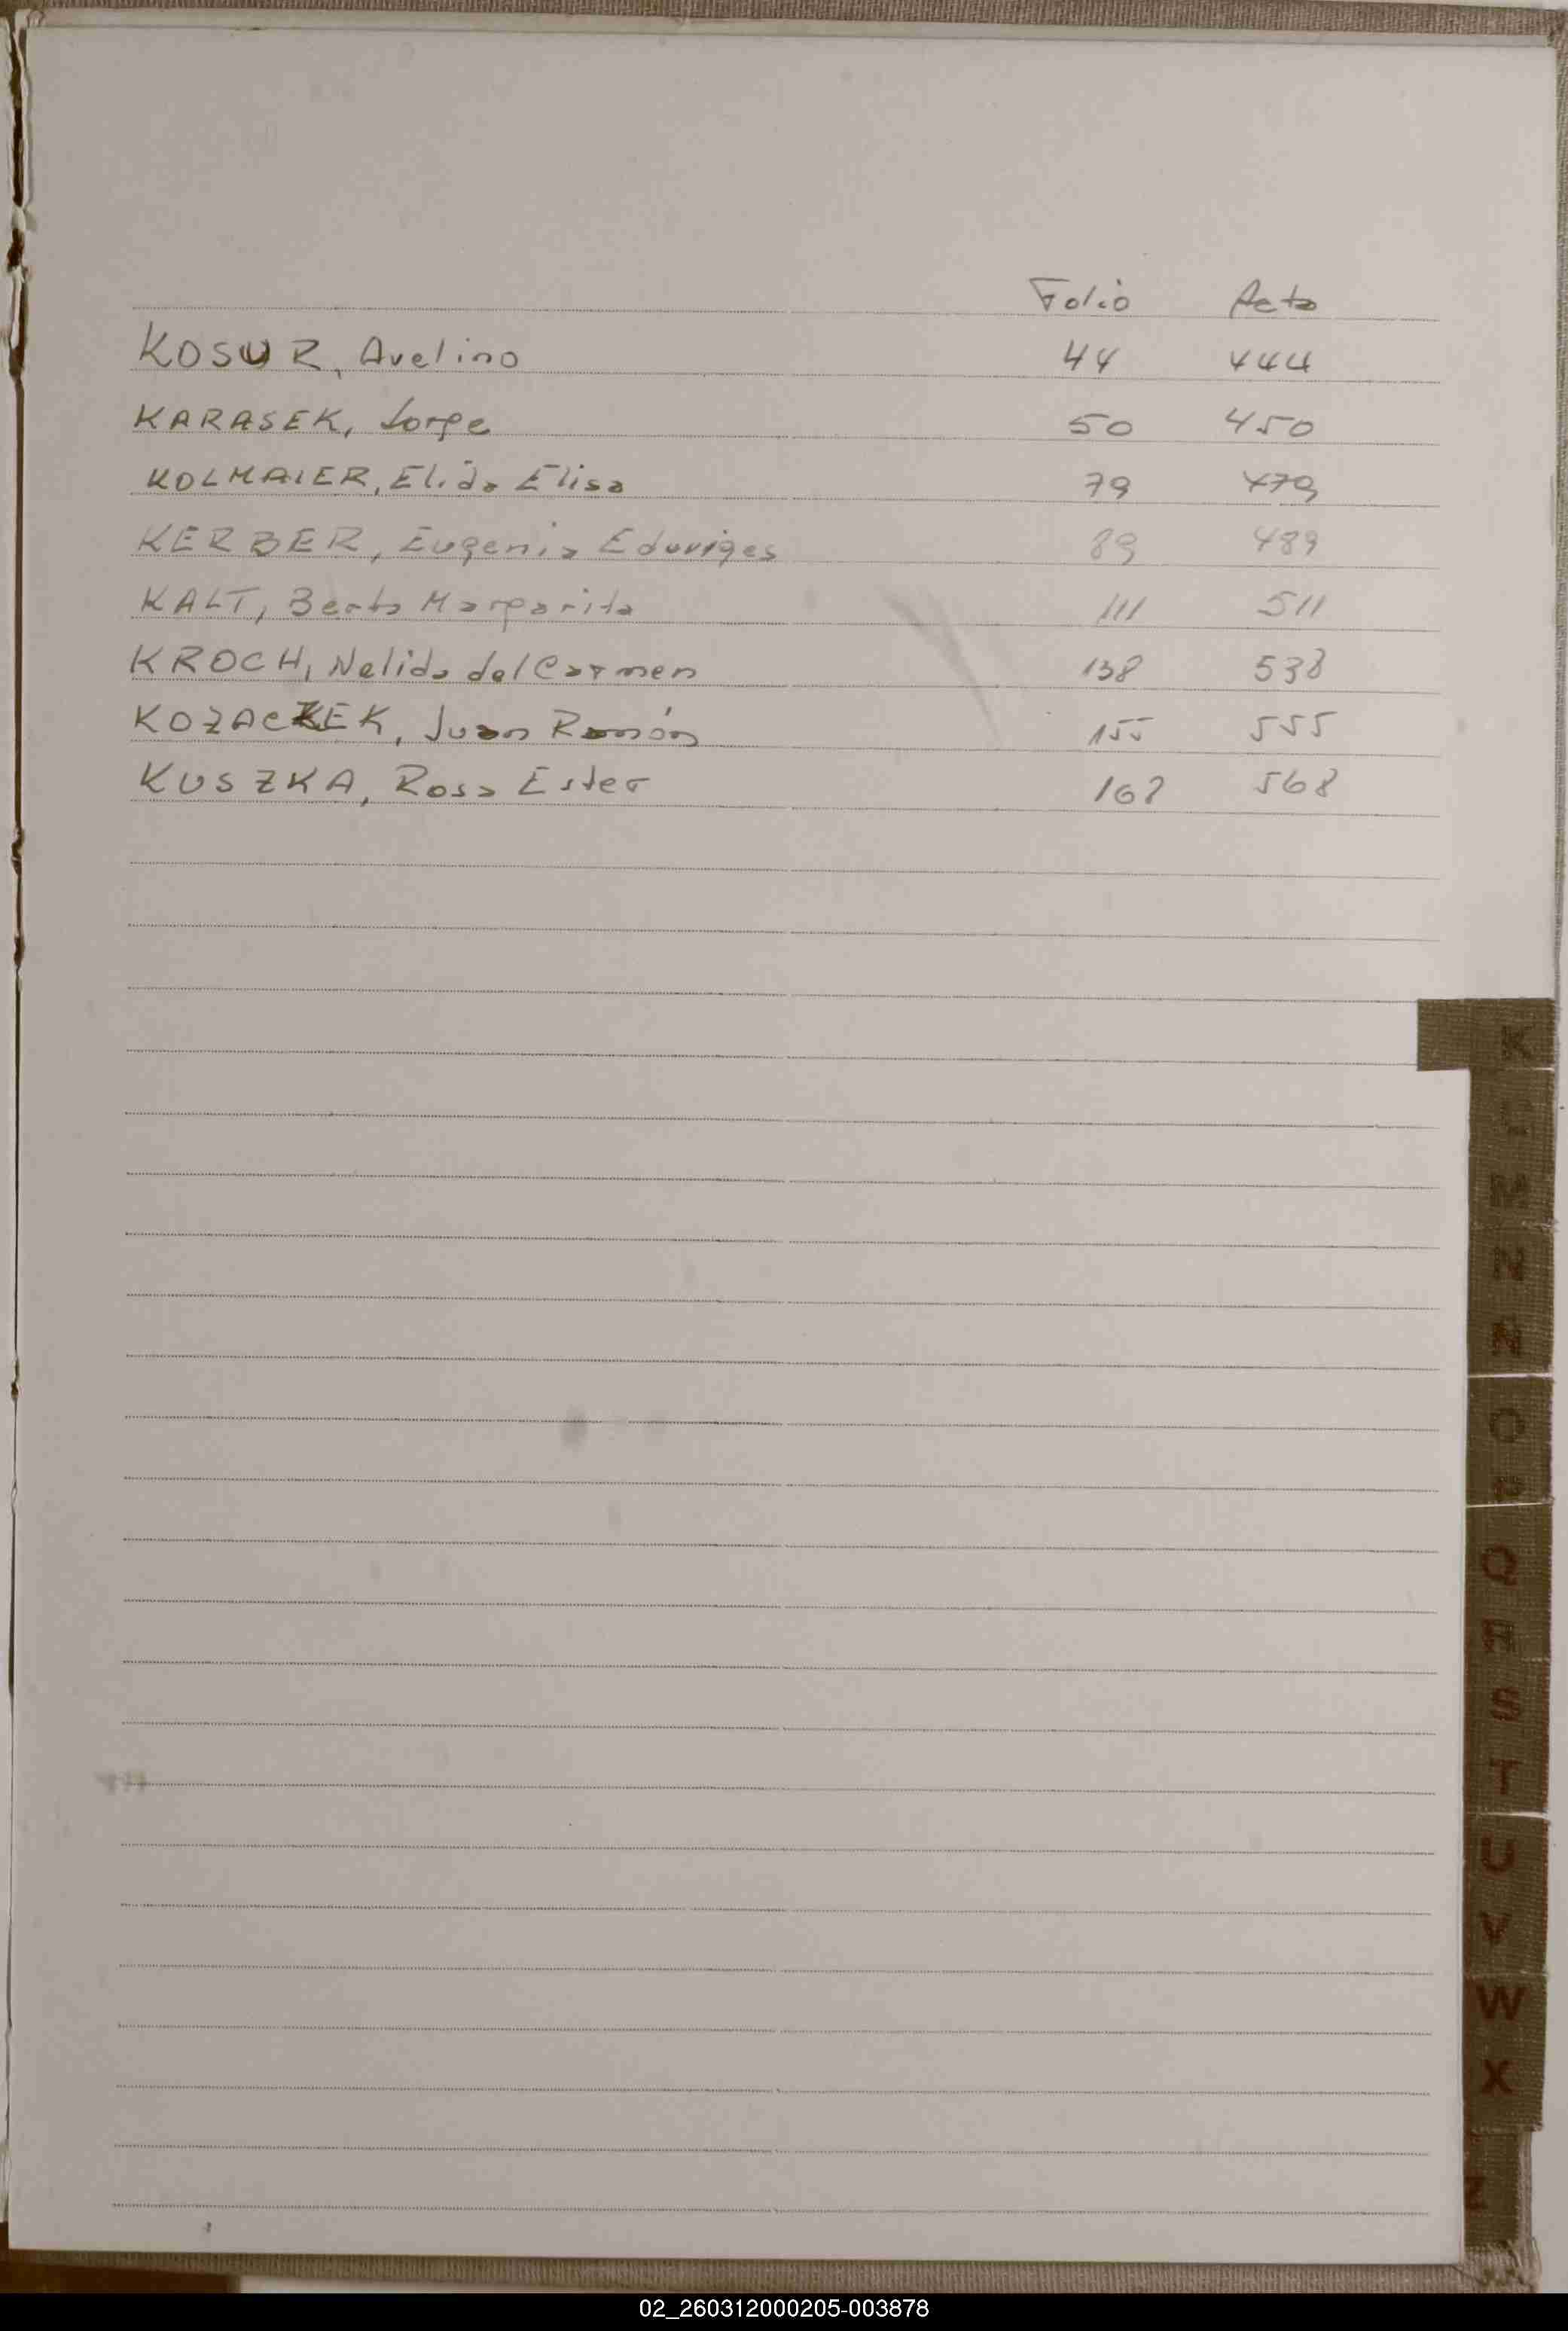 Folio Acta
KOSUR, Avelino 44 444
KARASEK, Jorge 50 450
KOLMAIER, Elida Elisa 79 479
KERBER, Eugenia Eduviges 89 489
KALT, Berta Margarita 111 511
KROCH, Nelida del Carmen 138 538
KOZACZEK, Juan Ramón 155 555
KUSZKA, Rosa Ester 168 568
K
M
N
Ñ
O
P
Q
R
S
T
U
V
W
X
Z
02_260312000205-003878